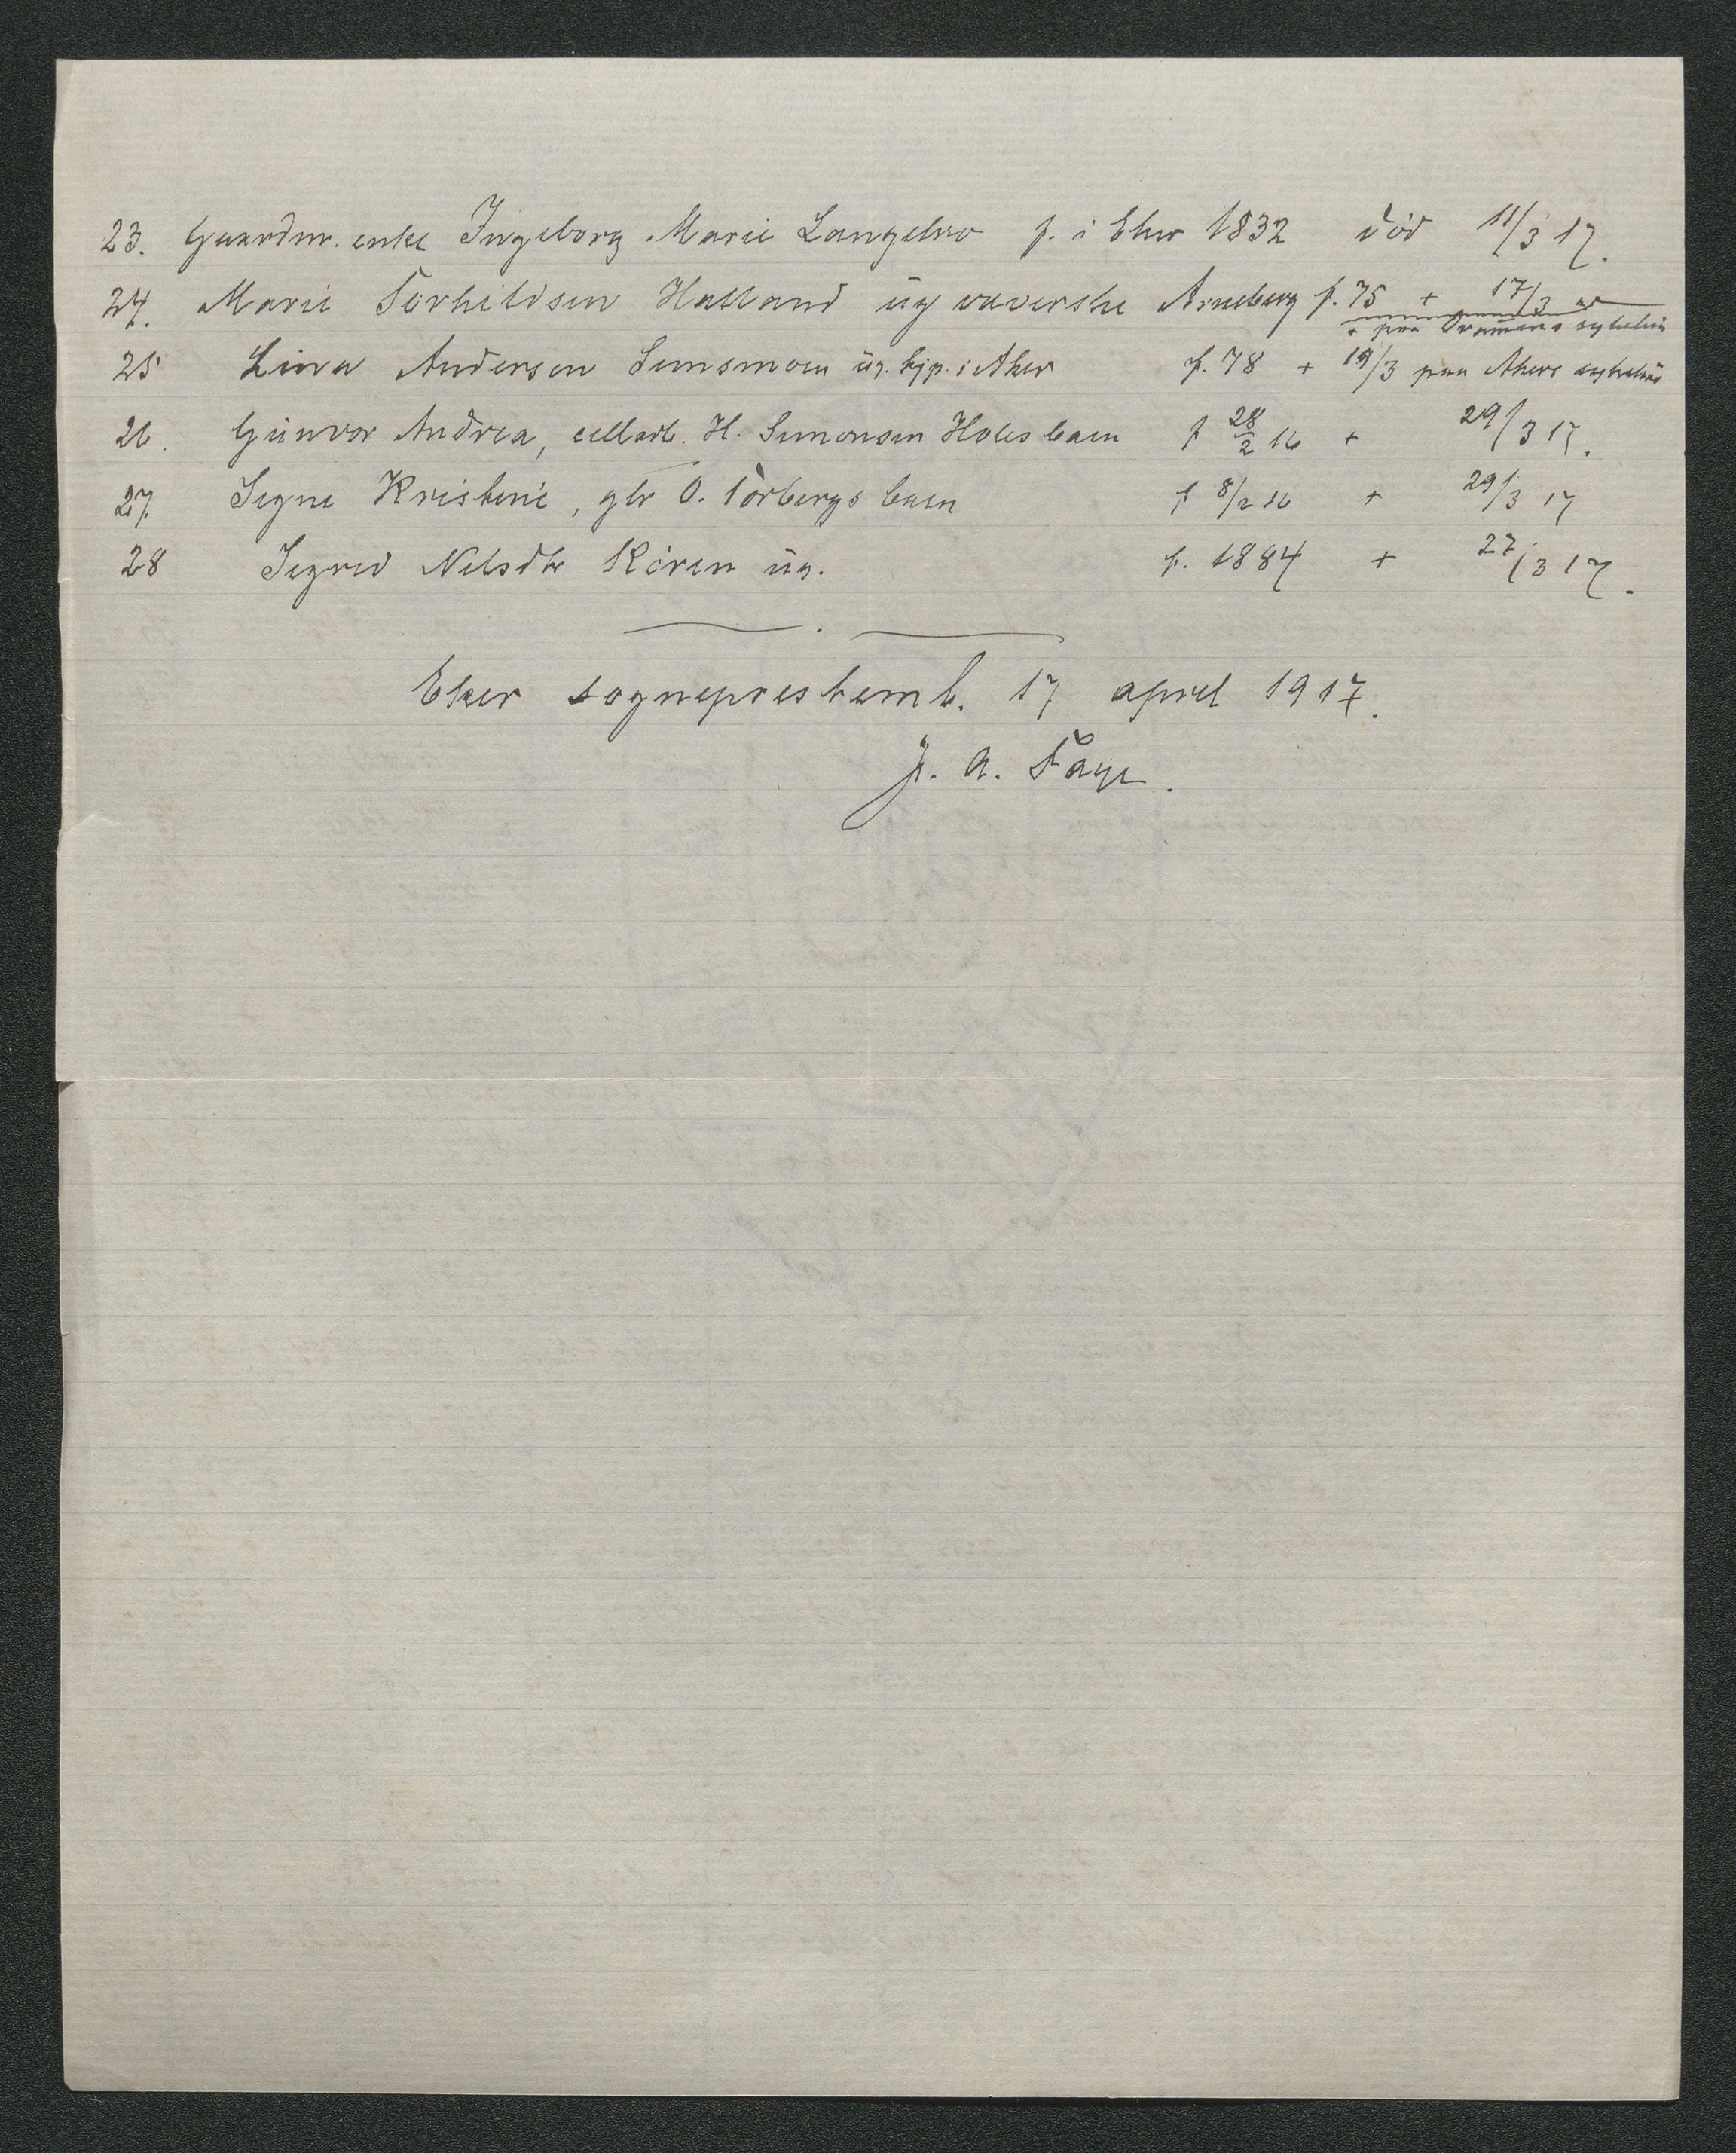 23. Gaardm. enke Ingeborg Marie Langebro f. i Eker 1832 död 11/3 17.
24. Marie Torkildsen Halland üg væverske Arneberg f. 75 + 17/3
+ paa Drammens sykehüs
25 Lina Andersen Simsmoen üg. hjp. i Aker f. 78 + 19/3 paa Akers sykehüs
26. Günvor Andrea, cellarb. H. Simonsen Holes baen f 28/2 16 + 29/3 17.
27. Signe Kristine, gbr O. Torbergs baen f 8/2 16 + 29/3 17
28 Sigrid Nilsdtr Kören üg. f. 1884 + 27/3 17.
Eker sogneprestemb. 17 april 1917.
J. A. Faye.